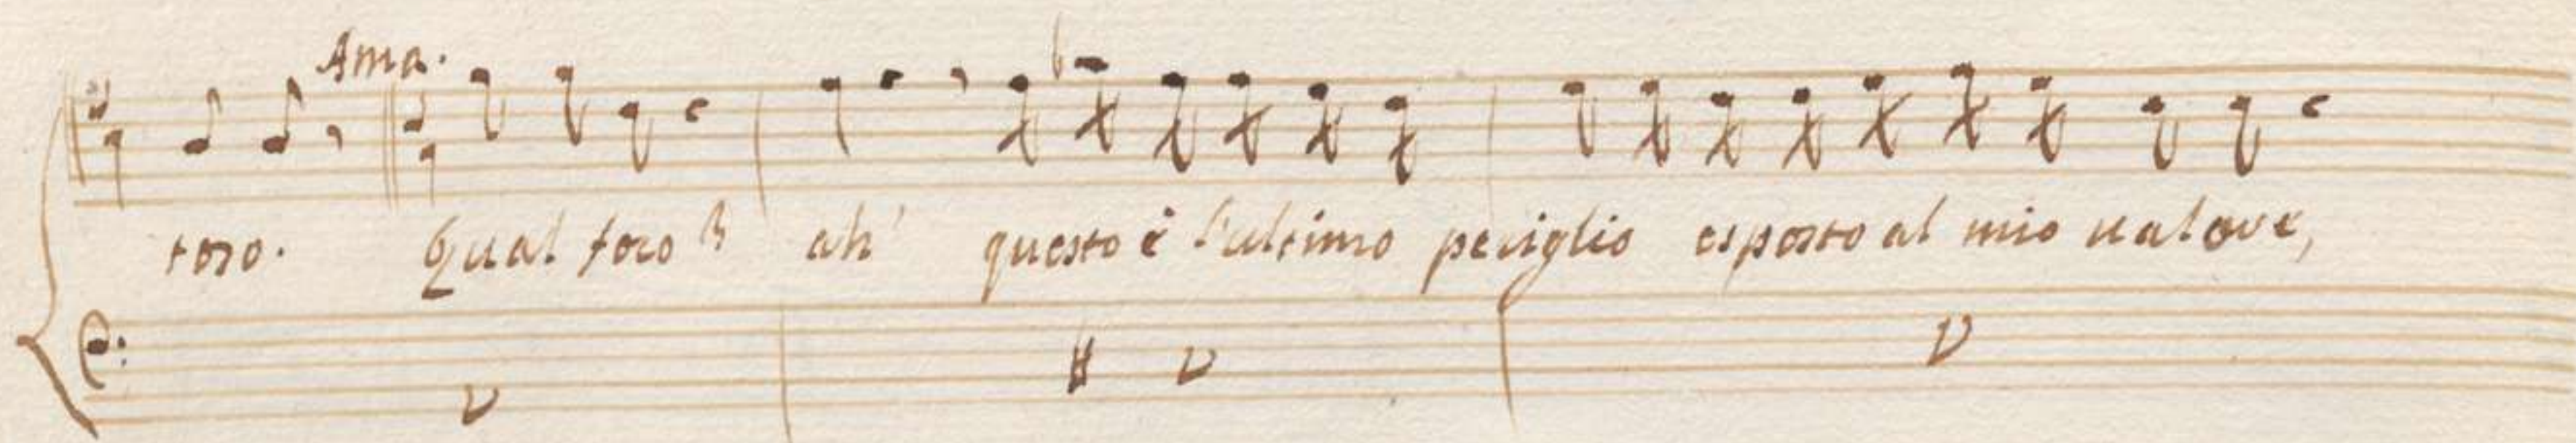 Ama.
toro. Qual foco? ah! questo è l'ultimo periglio esposto al mio ualore,